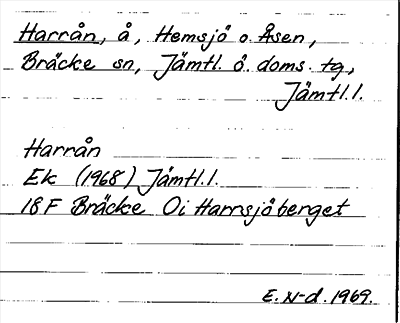 Harrån, å, Hemsjö o. Åsen,
Bräcke sn, Jämtl. ö. doms. tg,
Jämtl.l.
Harrån
Ek (1968) Jämtl.l.
18F Bräcke Oi Harrsjöberget
E. N-d. 1969.